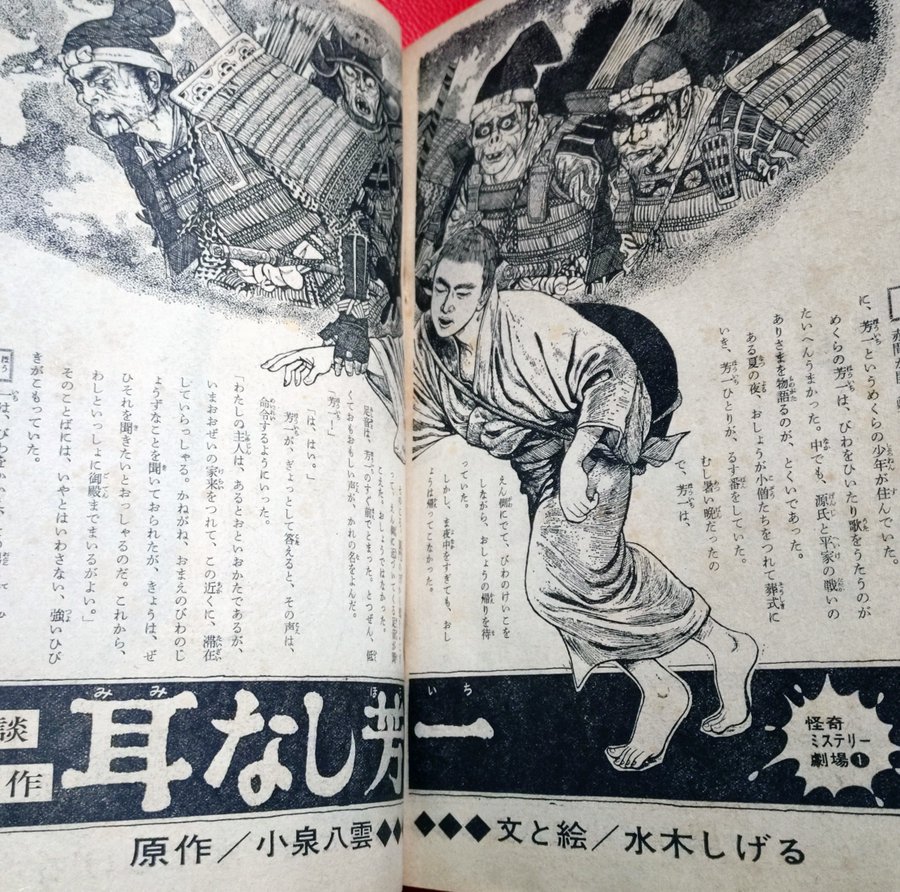 に、芳一というめくらの少年が住んでいた。
めくらの芳一は、びわをひいたり歌をうたうのが
たいへんうまかった。中でも、源氏と平家の戦いの
ありさまを物語るのが、とくいであった。
ある夏の夜、おしょうが小僧たちをつれて葬式に
いき、芳一ひとりが、るす番をしていた。
むし暑い晩だったの
で、芳一は、
えん側にでて、びわのけいこを
しながら、おしょうの帰りを待
っていた。
しかし、ま夜中をすぎても、おし
ょうは帰ってこなかった。
こえた。おしょうではなかった。
足音は、芳一のすぐ前でとまった。とつぜん、低
くておもおもしい声が、かれの名をよんだ。
芳一！」
「は、はい。」
芳一が、ぎょっとして答えると、その声は、
命令するようにいった。
「わたしの主人は、あるとおといおかたであるが、
いまおおぜいの家来をつれて、この近くに、滞在
していらっしゃる。かねがね、おまえのびわのじ
ょうずなことを聞いておられたが、きょうは、ぜ
ひそれを聞きたいとおっしゃるのだ。これから、
わしといっしょに御殿までまいるがよい。」
そのことばには、いやとはいわさない、強いひび
きがこもっていた。
談
作
みみ ほういち
耳なし芳一
怪奇
ミステリー
劇場❶
原作／小泉八雲◆◆◆◆◆文と絵／水木しげる